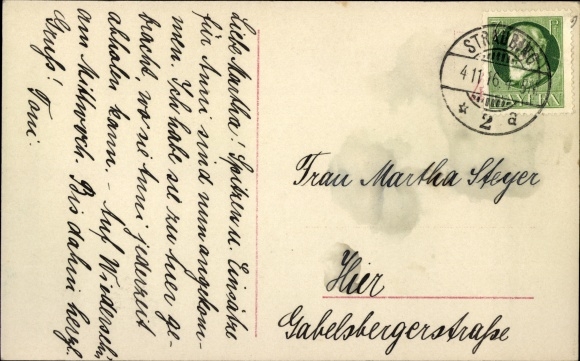 Liebe Martha! Spitzen u. Einsätze
für Anni sind nun angekom-
men. Ich habe sie zu euer ge-
bracht, wo sie Anni jederzeit
abholen kann. - Auf Wiedersehn
am Mittwoch. Bis dahin herzl.
Gruß! Toni.
STRAUBING
4 11 16
* 2 a
BAYERN
Frau Martha Steyer
Hier
Gabelsbergerstraße